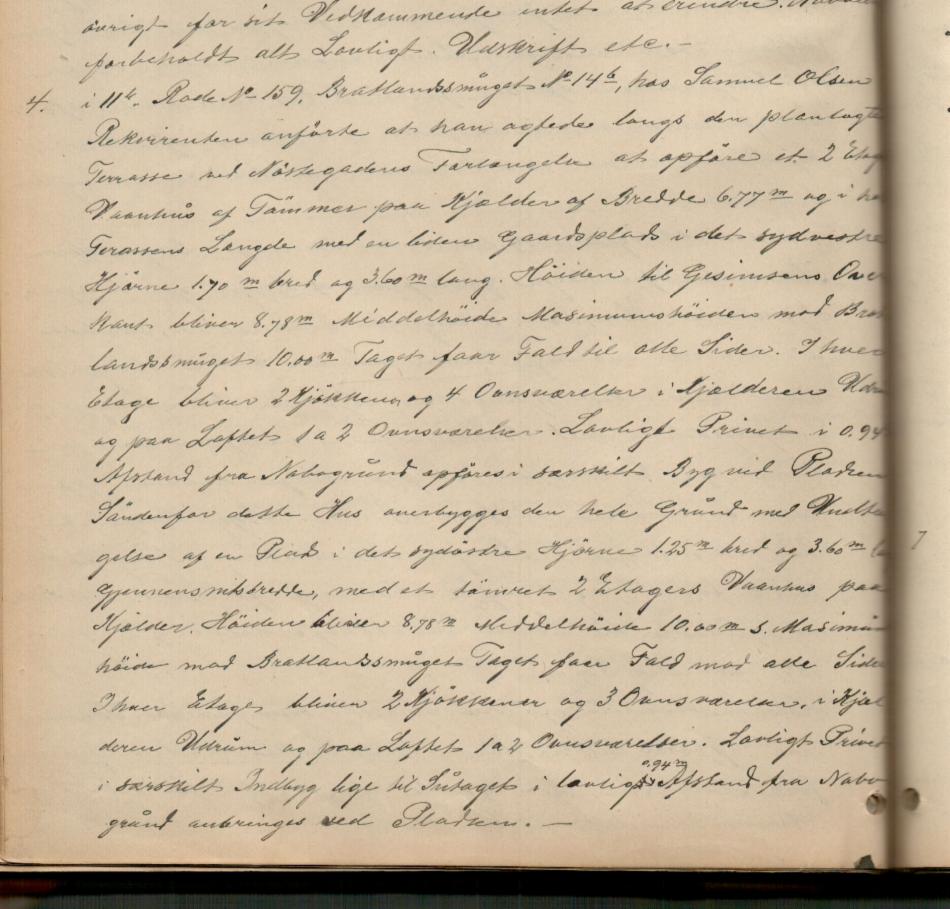 övrigt for sit Vedkommende intet at erindre.
forbeholdt alt Lovligt. Udskrift etc. –
4. i 11te Rode No 159. Bratlandssmuget No 14b, hos Samuel Olsen
Rekvirenten anförte at han agtede langs den planlagte
Terrasse ved Nöstegadens Forlængelse at opföre et 2 Etag
Vaanhus af Tömmer paa Kjælder af Bredde 6.77 m og i he
Terassens Længde med en liden Gaardsplads i det sydvestre
Hjörne 1.70 m bred og 3.60 m lang. Höiden til Gesimsens Over
kant bliver 8.78 m Middelhöide Maximumshöiden mod Brat
landssmuget 10.00 m Taget faar Fald til alle Sider. I hver
Etage bliver 2 Kjökkener og 4 Ovnsværelser i Kjælderen Udrum
og paa Loftet 1 a 2 Ovnsværelser. Lovligt Privet i 0.94
Afstand fra Nabogrund opföres i særskilt Byg ved Pladsen
Söndenfor dette Hus overbygges den hele Grund med Undta
gelse af en Plads i det sydöstre Hjörne 1.25 m bred og 3.60 m
Gjennemsnitsbredde, med et tömret 2 Etagers Vaanhus paa
Kjælder. Höiden bliver 8,78 m Middelhöide 10.00 m s. Maximum
höide mod Bratlandssmuget Taget faar Fald mod alle Sider
I hver Etage bliver 2 Kjökkener og 3 Ovnsværelser, i Kjæl
deren Udrum og paa Loftet 1 a 2 Ovnsværelser. Lovligt Privet
i særskilt Indbyg lige til Luftaget i lovligt 0.94 m Afstand fra Nabo
grund anbringes ved Pladsen. –
7